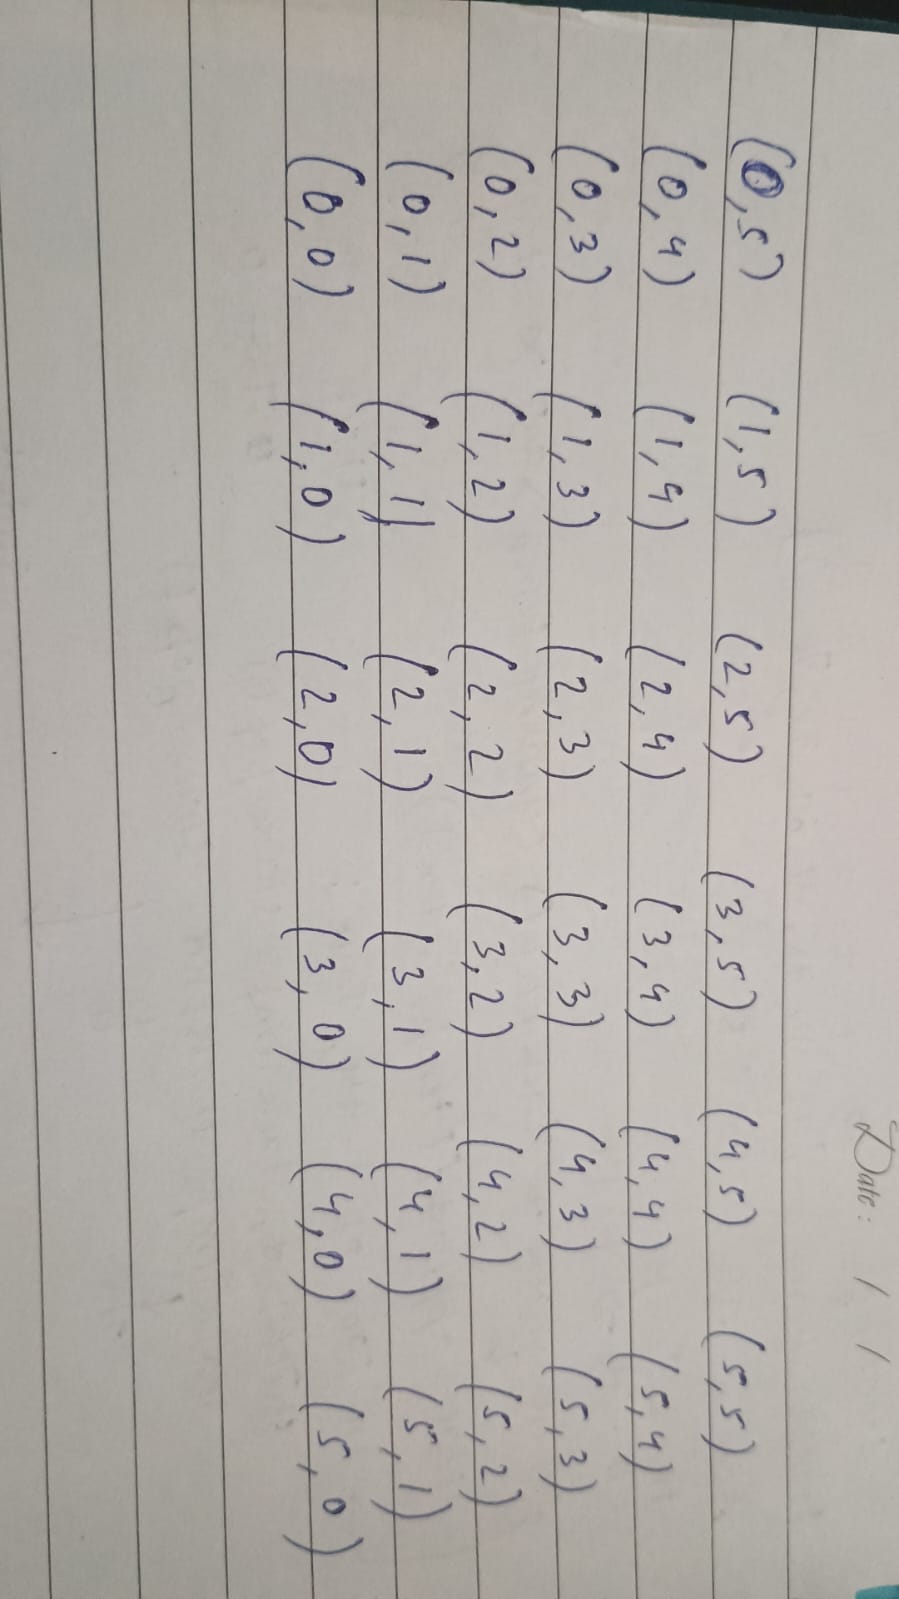 Date: / /
(0,5) (1,5) (2,5) (3,5) (4,5) (5,5)
(0,4) (1,4) (2,4) (3,4) (4,4) (5,4)
(0,3) (1,3) (2,3) (3,3) (4,3) (5,3)
(0,2) (1,2) (2,2) (3,2) (4,2) (5,2)
(0,1) (1,1) (2,1) (3,1) (4,1) (5,1)
(0,0) (1,0) (2,0) (3,0) (4,0) (5,0)